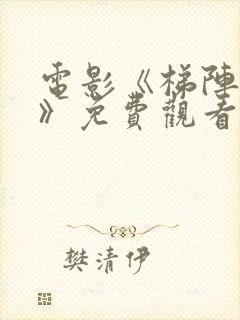 電影《梯陣
》免費觀看
樊清伊